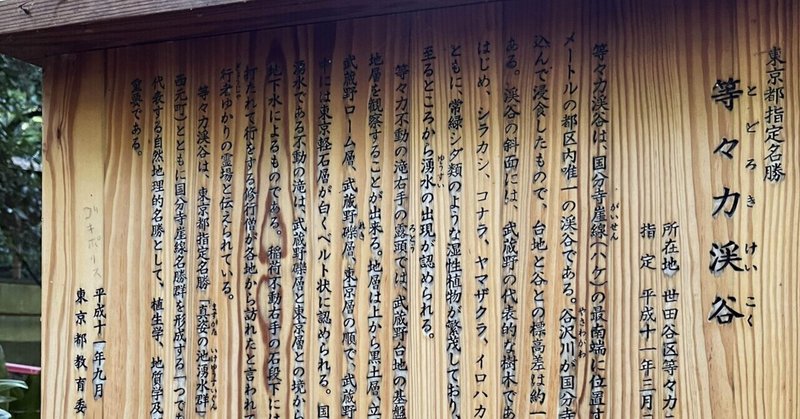 東京都指定名勝
とどろきけいこく
等々力渓谷
所在地　世田谷区等々力
指定　平成十一年三月
等々力渓谷は、国分寺崖線(ハケ)の最南端に位置す
がいせん
メートルの都区内唯一の渓谷である。谷沢川が国分寺
やさわかわ
込んで浸食したもので、台地と谷との標高差は約一
ある。渓谷の斜面には、武蔵野の代表的な樹木であ
はじめ、シラカシ、コナラ、ヤマザクラ、イロハカ
ともに、常緑シダ類のような湿性植物が繁茂しており、
至るところから湧水の出現が認められる。
ゆうすい
等々力不動の滝右手の露頭では、武蔵野台地の基盤
ろとう
地層を観察することが出来る。地層は上から黒土層、立
武蔵野ローム層、武蔵野礫層、東京層の順で、武蔵野
れき
中には東京軽石層が白くベルト状に認められる。国
湧水である不動の滝は、武蔵野礫層と東京層との境から
地下水によるものである。稲荷不動右手の石段下に
打たれて行をする修行僧が各地から訪れたと言われて
行者ゆかりの霊場と伝えられている。
等々力渓谷は、東京都指定名勝「真姿の池湧水群」
ますがた　いけゆうすいぐん
西元町)とともに国分寺崖線名勝群を形成する一つで
代表する自然地理的名勝として、植生学、地質学及
重要である。
ゴキポリス
平成十一年九月
東京都教育委